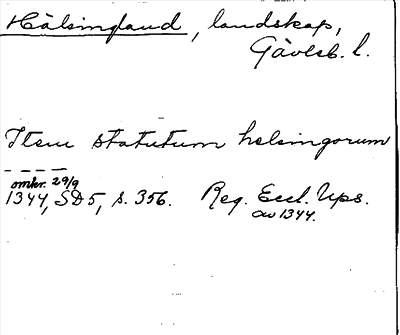 Hälsingland, landskap,
Gävleb. l.
Item statutum helsingorum
- - - -
omkr. 29/9
1344, SD5, s. 356. Reg. Eccl. Ups.
av 1344.